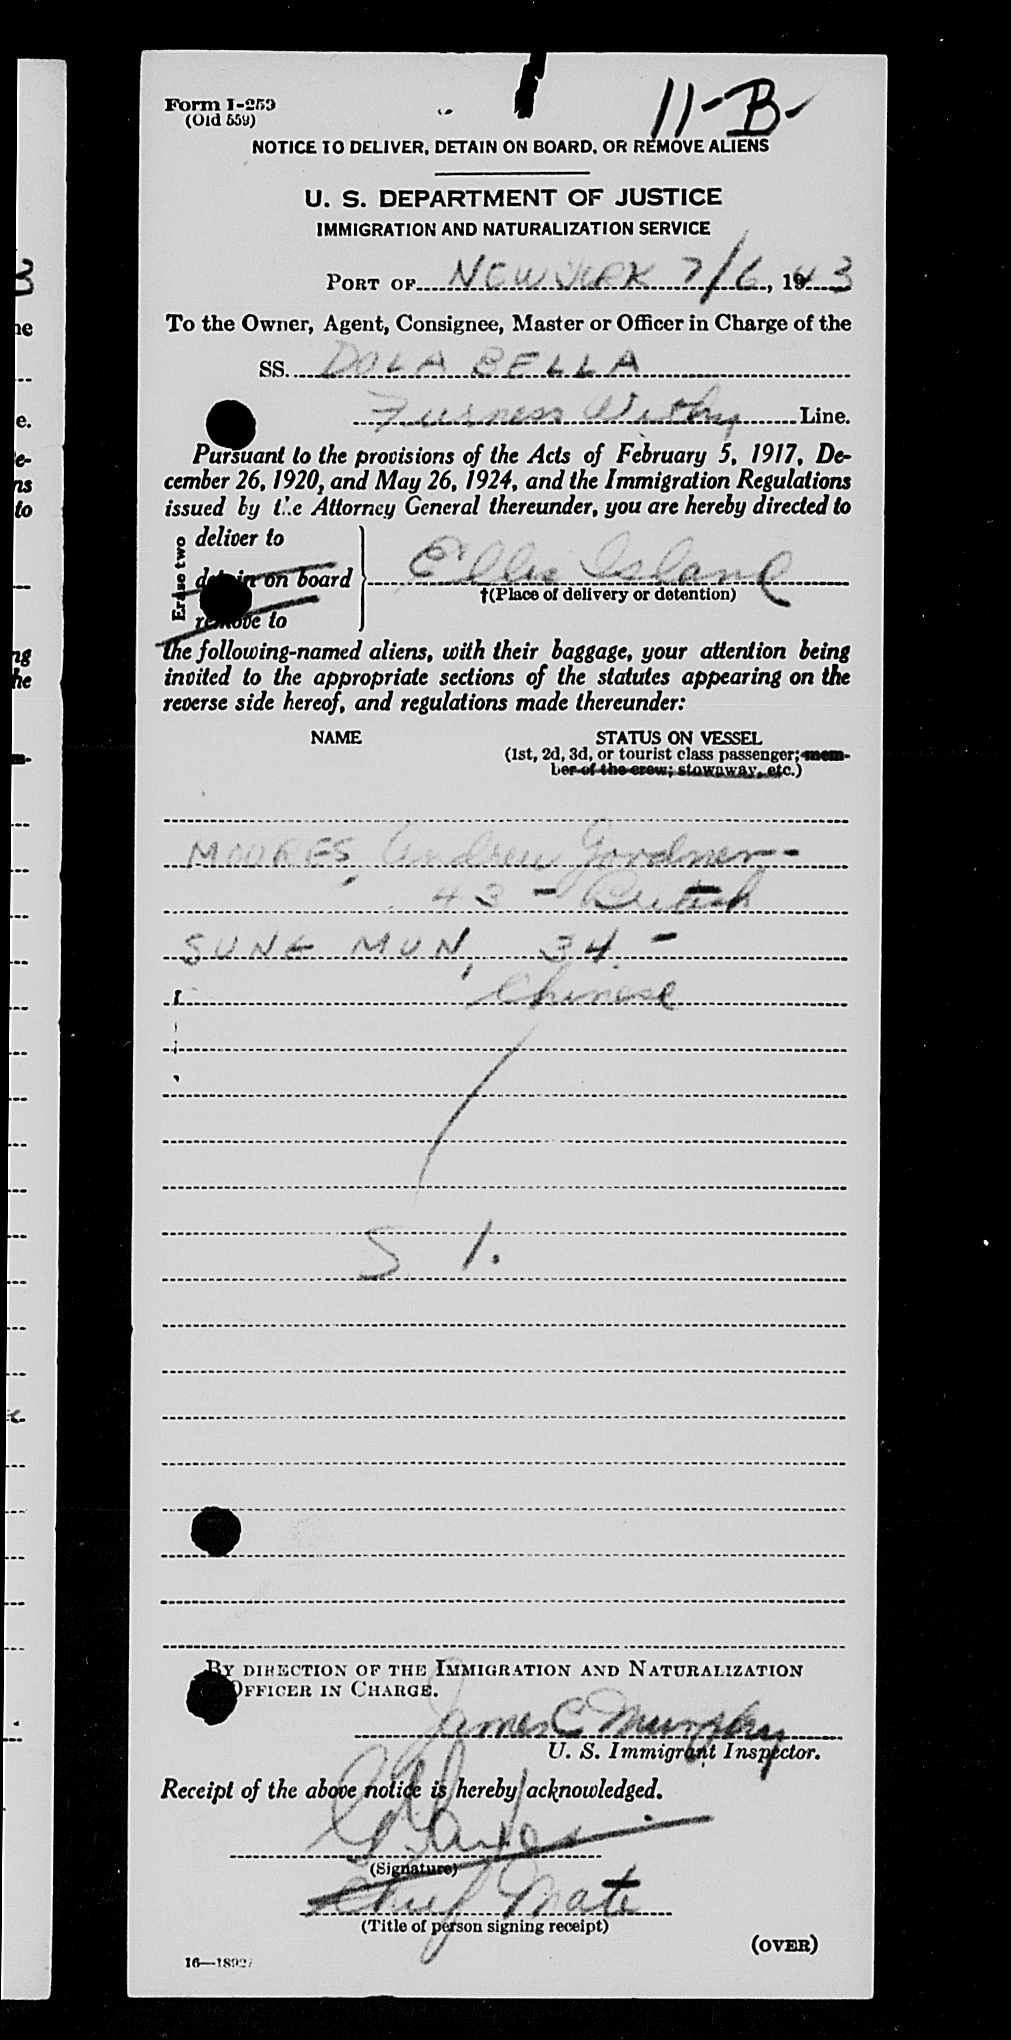 11-B-
Form I-259
(Old 559)
NOTICE TO DELIVER, DETAIN ON BOARD, OR REMOVE ALIENS
U. S. DEPARTMENT OF JUSTICE
IMMIGRATION AND NATURALIZATION SERVICE
PORT OF NEW YORK 7/6, 1943
To the Owner, Agent, Consignee, Master or Officer in Charge of the
SS. DOLABELLA
Furness Withy Line.
Pursuant to the provisions of the Acts of February 5, 1917, De-
cember 26, 1920, and May 26, 1924, and the Immigration Regulations
issued by the Attorney General thereunder, you are hereby directed to
Erase two
deliver to
detain on board
remove to
Ellis Island
†(Place of delivery or detention)
the following-named aliens, with their baggage, your attention being
invited to the appropriate sections of the statutes appearing on the
reverse side hereof, and regulations made thereunder:
NAME STATUS ON VESSEL
(1st, 2d, 3d, or tourist class passenger; mem-
ber of the crew; stowaway, etc.)
MOORES, Andrew Gordner -
43 - British
SUNG MUN, 34 -
Chinese
S 1.
BY DIRECTION OF THE IMMIGRATION AND NATURALIZATION
OFFICER IN CHARGE.
James C Murphy
U. S. Immigrant Inspector.
Receipt of the above notice is hereby acknowledged.
(Signature)
Chief Mate
(Title of person signing receipt)
(OVER)
16—18927